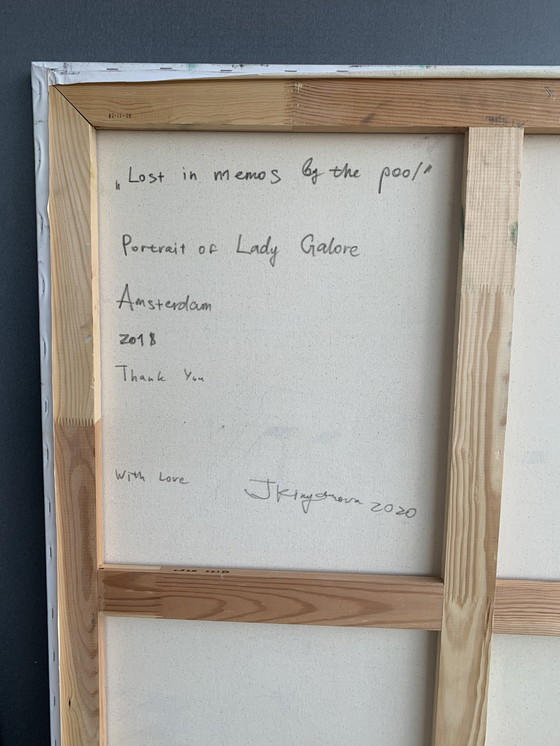 „Lost in memos by the pool"
Portrait of Lady Galore
Amsterdam
2018
Thank You
With Love
2020